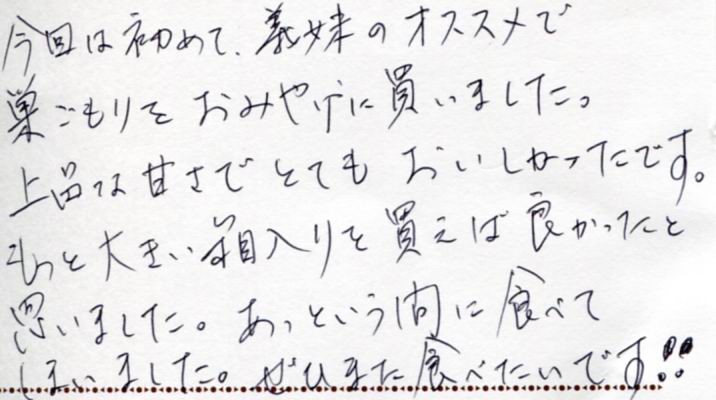 今回は初めて、義妹のオススメで
巣ごもりをおみやげに買いました。
上品な甘さでとてもおいしかったです。
もっと大きい箱入りを買えば良かったと
思いました。あっという間に食べて
しまいました。ぜひまた食べたいです!!